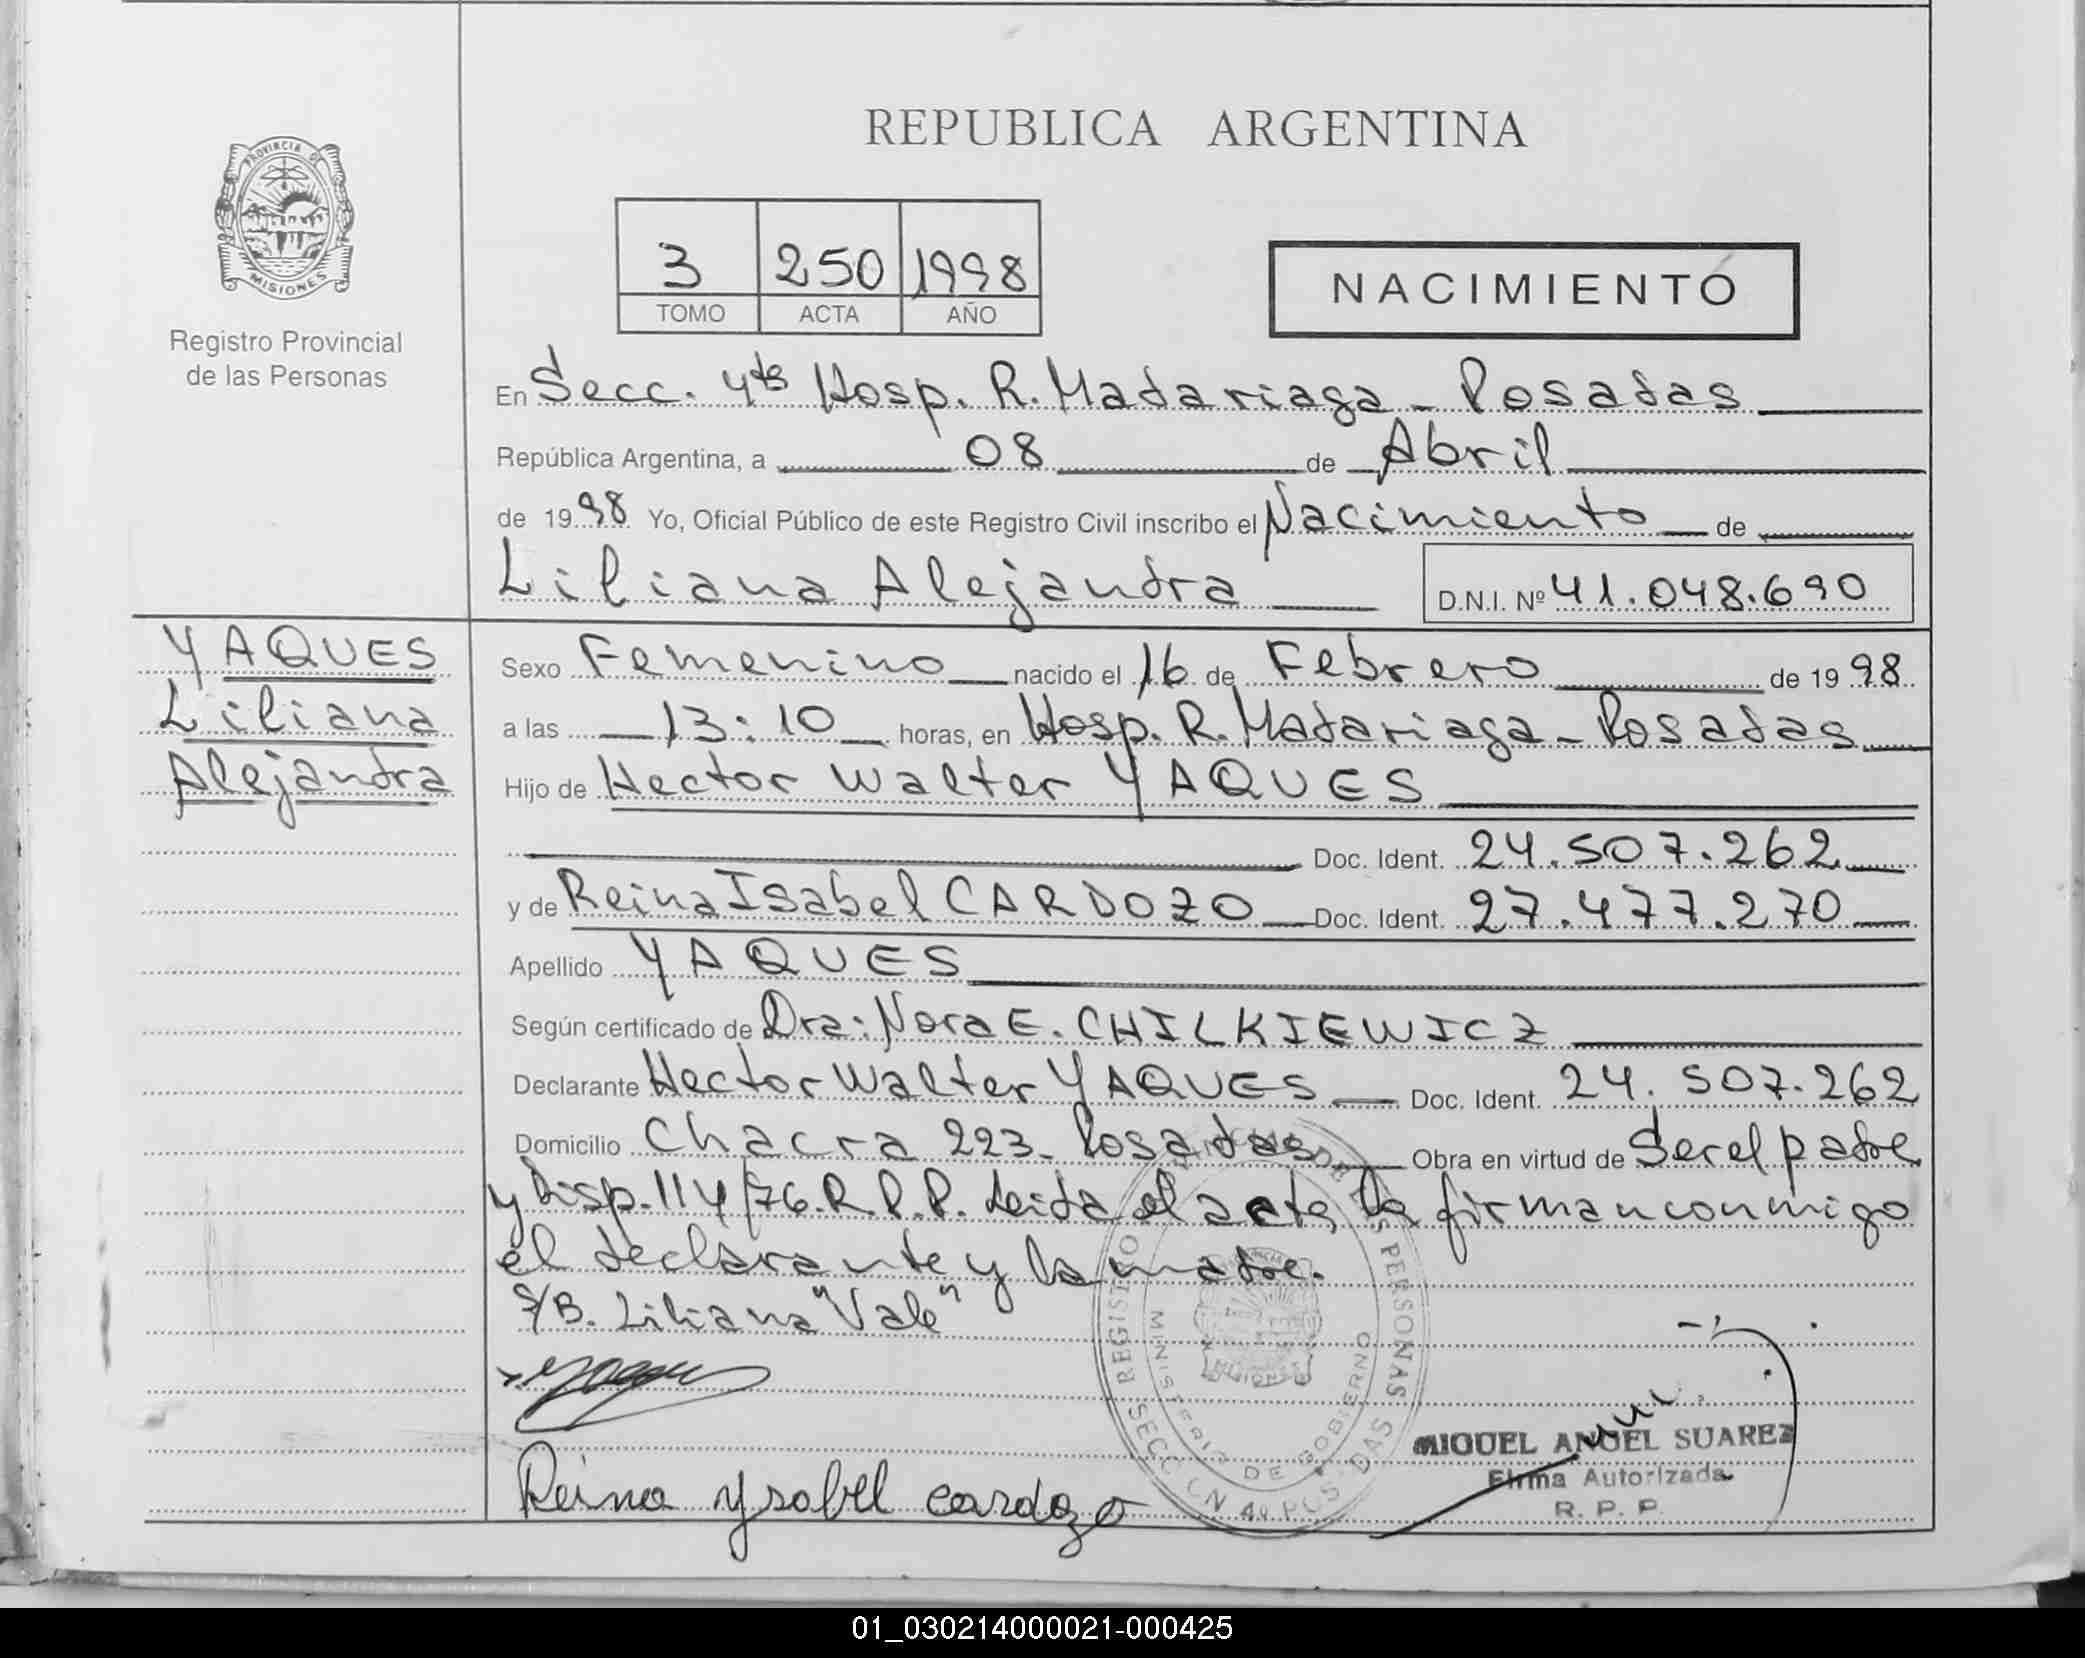 REPUBLICA ARGENTINA
PROVINCIA DE
MISIONES
Registro Provincial
de las Personas
3 250 1998
TOMO ACTA AÑO
NACIMIENTO
En Secc. 4ta Hosp. R. Madariaga - Posadas
República Argentina, a 08 de Abril
de 1998 Yo, Oficial Público de este Registro Civil inscribo el Nacimiento de
Liliana Alejandra D.N.I. Nº 41.048.690
YAQUES
Liliana
Alejandra
Sexo Femenino nacido el 16 de Febrero de 1998
a las 13:10 horas, en Hosp. R. Madariaga - Posadas
Hijo de Hector Walter YAQUES
Doc. Ident. 24.507.262
y de Reina Isabel CARDOZO Doc. Ident. 27.477.270
Apellido YAQUES
Según certificado de Dra: Nora E. CHILKIEWICZ
Declarante Hector Walter YAQUES Doc. Ident. 24.507.262
Domicilio Chacra 223 - Posadas Obra en virtud de Ser el padre
y Disp. 114/76. R.P.P. Leida el acta, la firman conmigo
el declarante y la madre.
S/B. Liliana "Vale"
Reina Ysabel cardozo
REGISTRO PROVINCIAL DE LAS PERSONAS
MINISTERIO DE GOBIERNO
SECCION 4a POSADAS
MISIONES
MIGUEL ANGEL SUAREZ
Firma Autorizada
R. P. P.
01_030214000021-000425